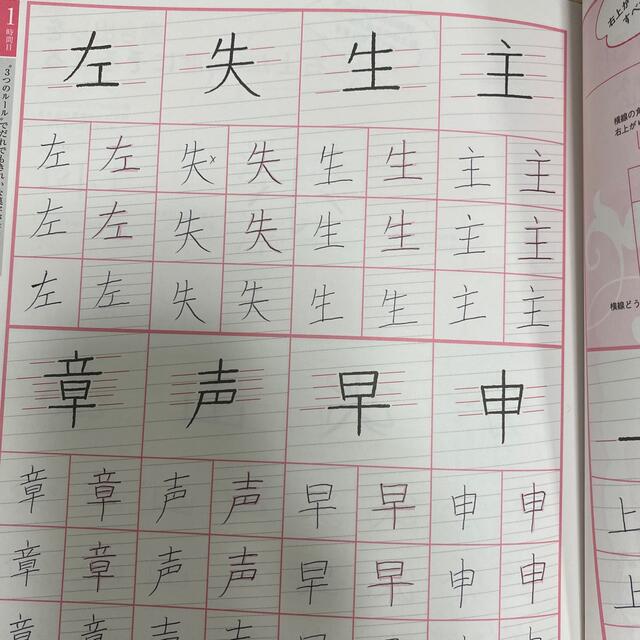 1
時間目
"3つのルール"でだれでもきれいな
左 失 生 主
左 左 失 失 生 生 主 主
左 左 失 失 生 生 主 主
左 左 失 失 生 生 主 主
章 声 早 申
章 章 声 声 早 早 申 申
章 章 声 声 早 早 申 申
章 章 声 声 早 早 申 申
右上が
すべ
横線の
右上が
横線どう
上
上